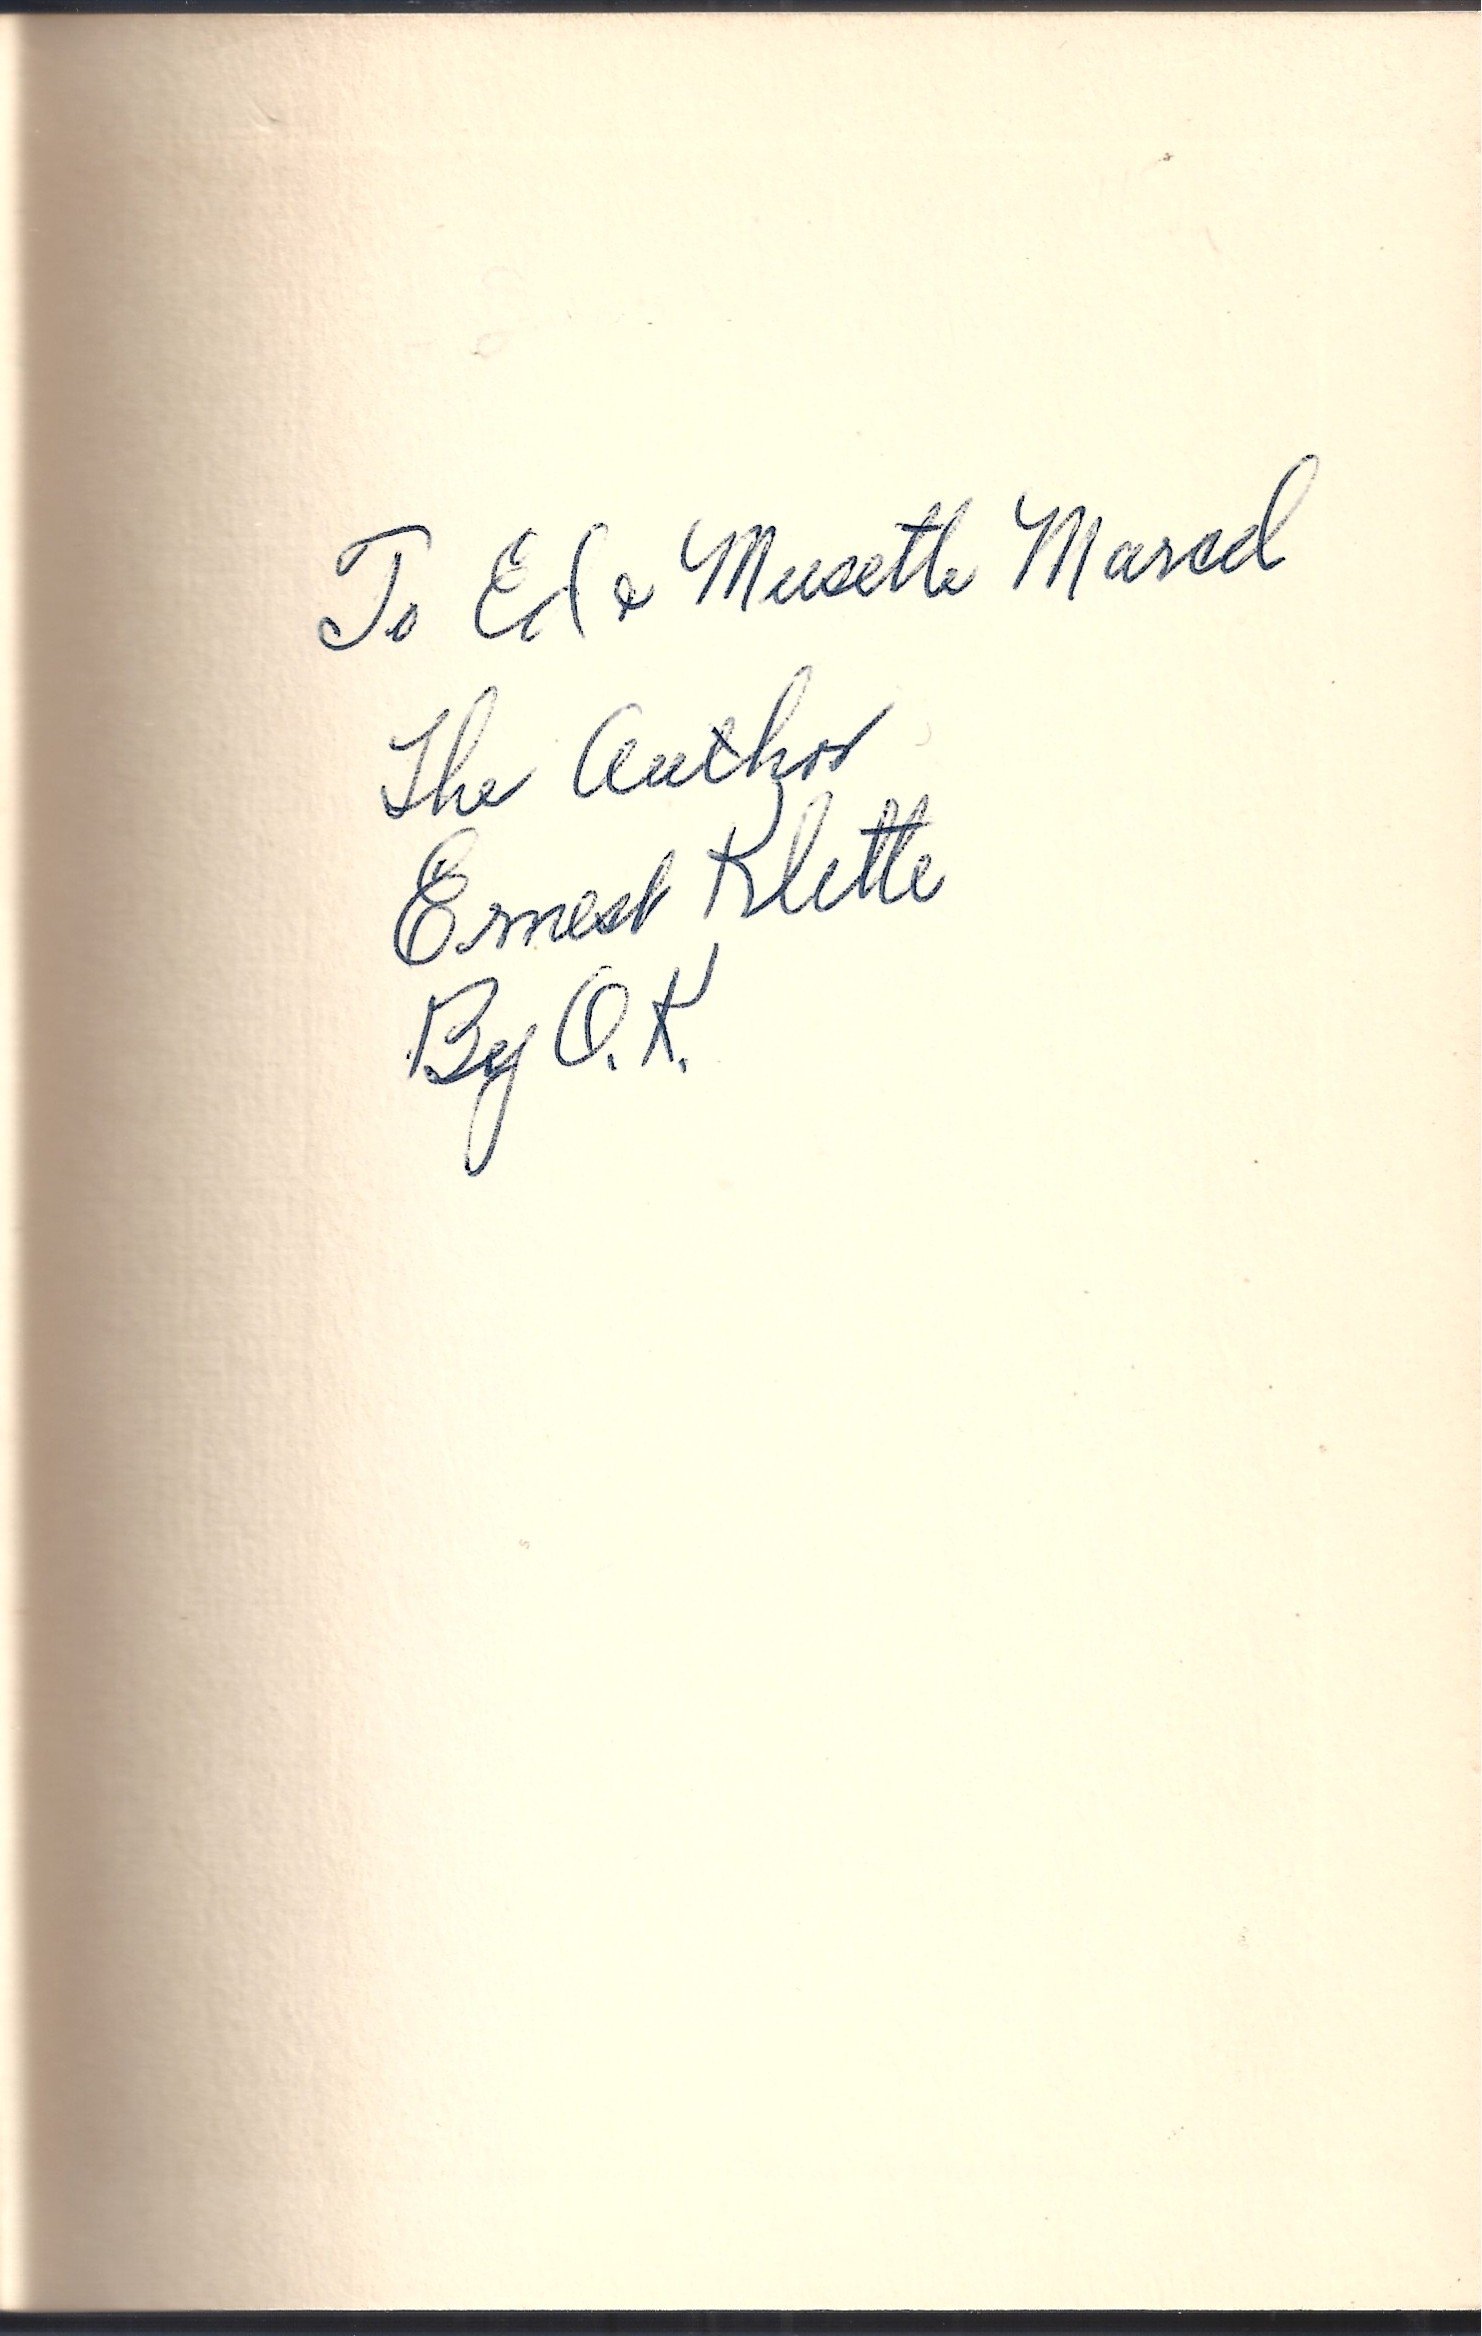 To Ed & Musette Marcel
The Author
Ernest Klette
By O.K.